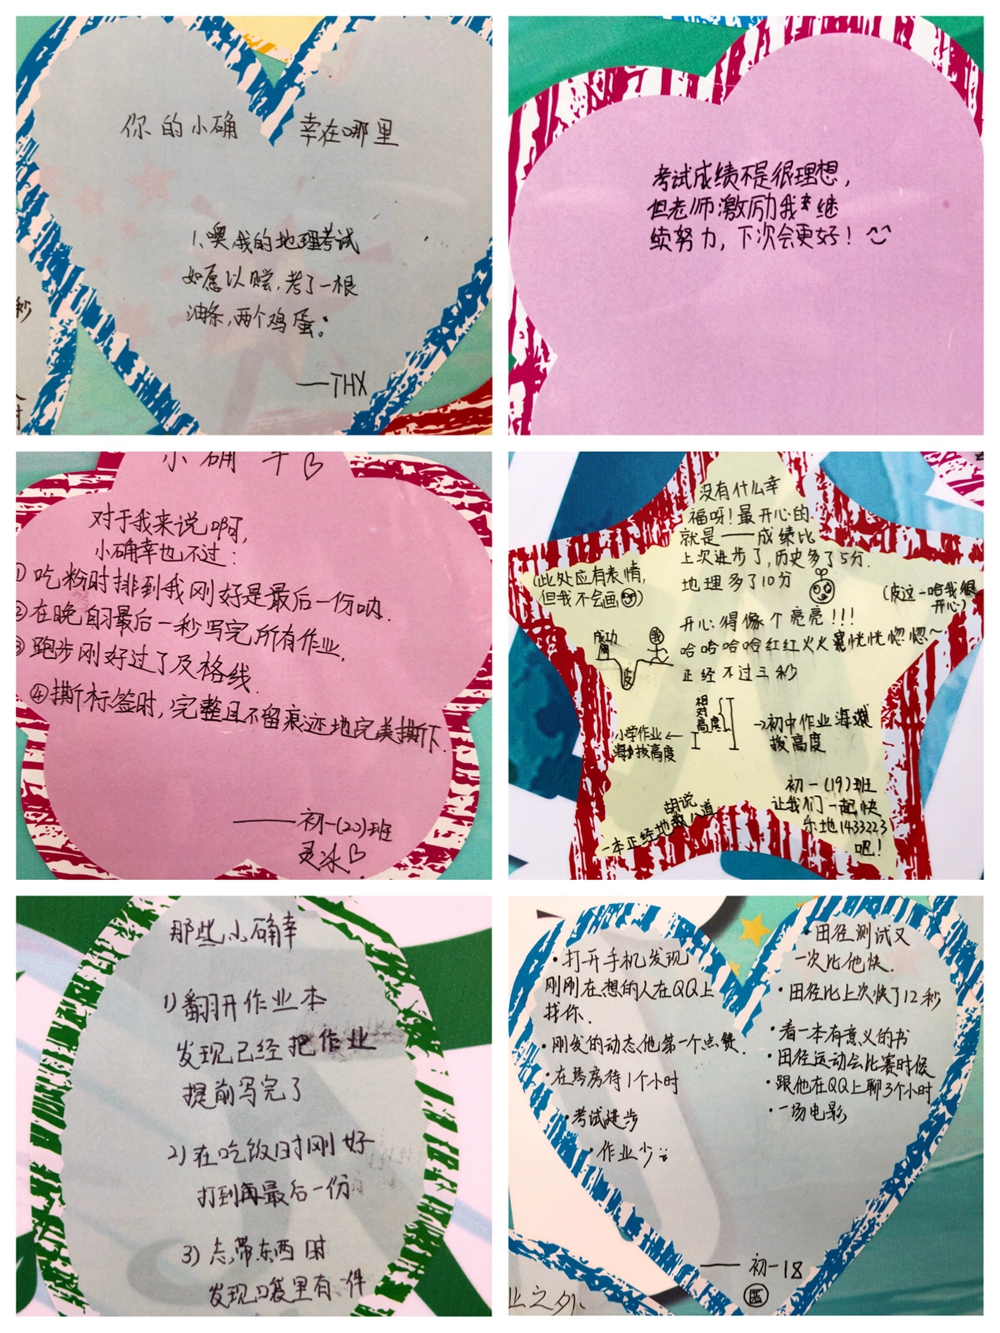 你的小确幸在哪里
1.噢我的地理考试
如愿以赔,考了一根
油条,两个鸡蛋。
——THX
考试成绩不是很理想,
但老师激励我来继
续努力,下次会更好!
小确幸
对于我来说啊,
小确幸也不过:
①吃粉时排到我刚好是最后一份呐.
②在晚自习最后一秒写完所有作业.
③跑步刚好过了及格线.
④撕标签时,完整且不留痕迹地完美撕下.
——初一(20)班
没有什么幸
福呀!最开心的
就是——成绩比
上次进步了,历史多了5分.
地理多了10分
(此处应有表情,
但我不会画)
(皮这一哈我很
开心)
开心得像个亮亮!!!
哈哈哈哈红红火火恍恍惚惚~
正经不过三秒
成功
我
皮
相对高度
小学作业
海拔高度
→初中作业海
拔高度
初一(19)班
让我们一起快
乐地1433223
吧!
胡说
一本正经地八道
那些小确幸
1)翻开作业本
发现已经把作业
提前写完了
2)在吃饭时刚好
打到最后一份
3)忘带东西时
发现口袋里有一件
·打开手机发现
刚刚在想的人在QQ上
找你.
·刚发的动态,他第一个点赞.
·在琴房待1个小时
·考试进步
·作业少
·田径测试又
一次比他快.
·田径比上次快了12秒
·看一本有意义的书
·田径运动会比赛时候
·跟他在QQ上聊3个小时
·一场电影
——初一18
秒
业之外、